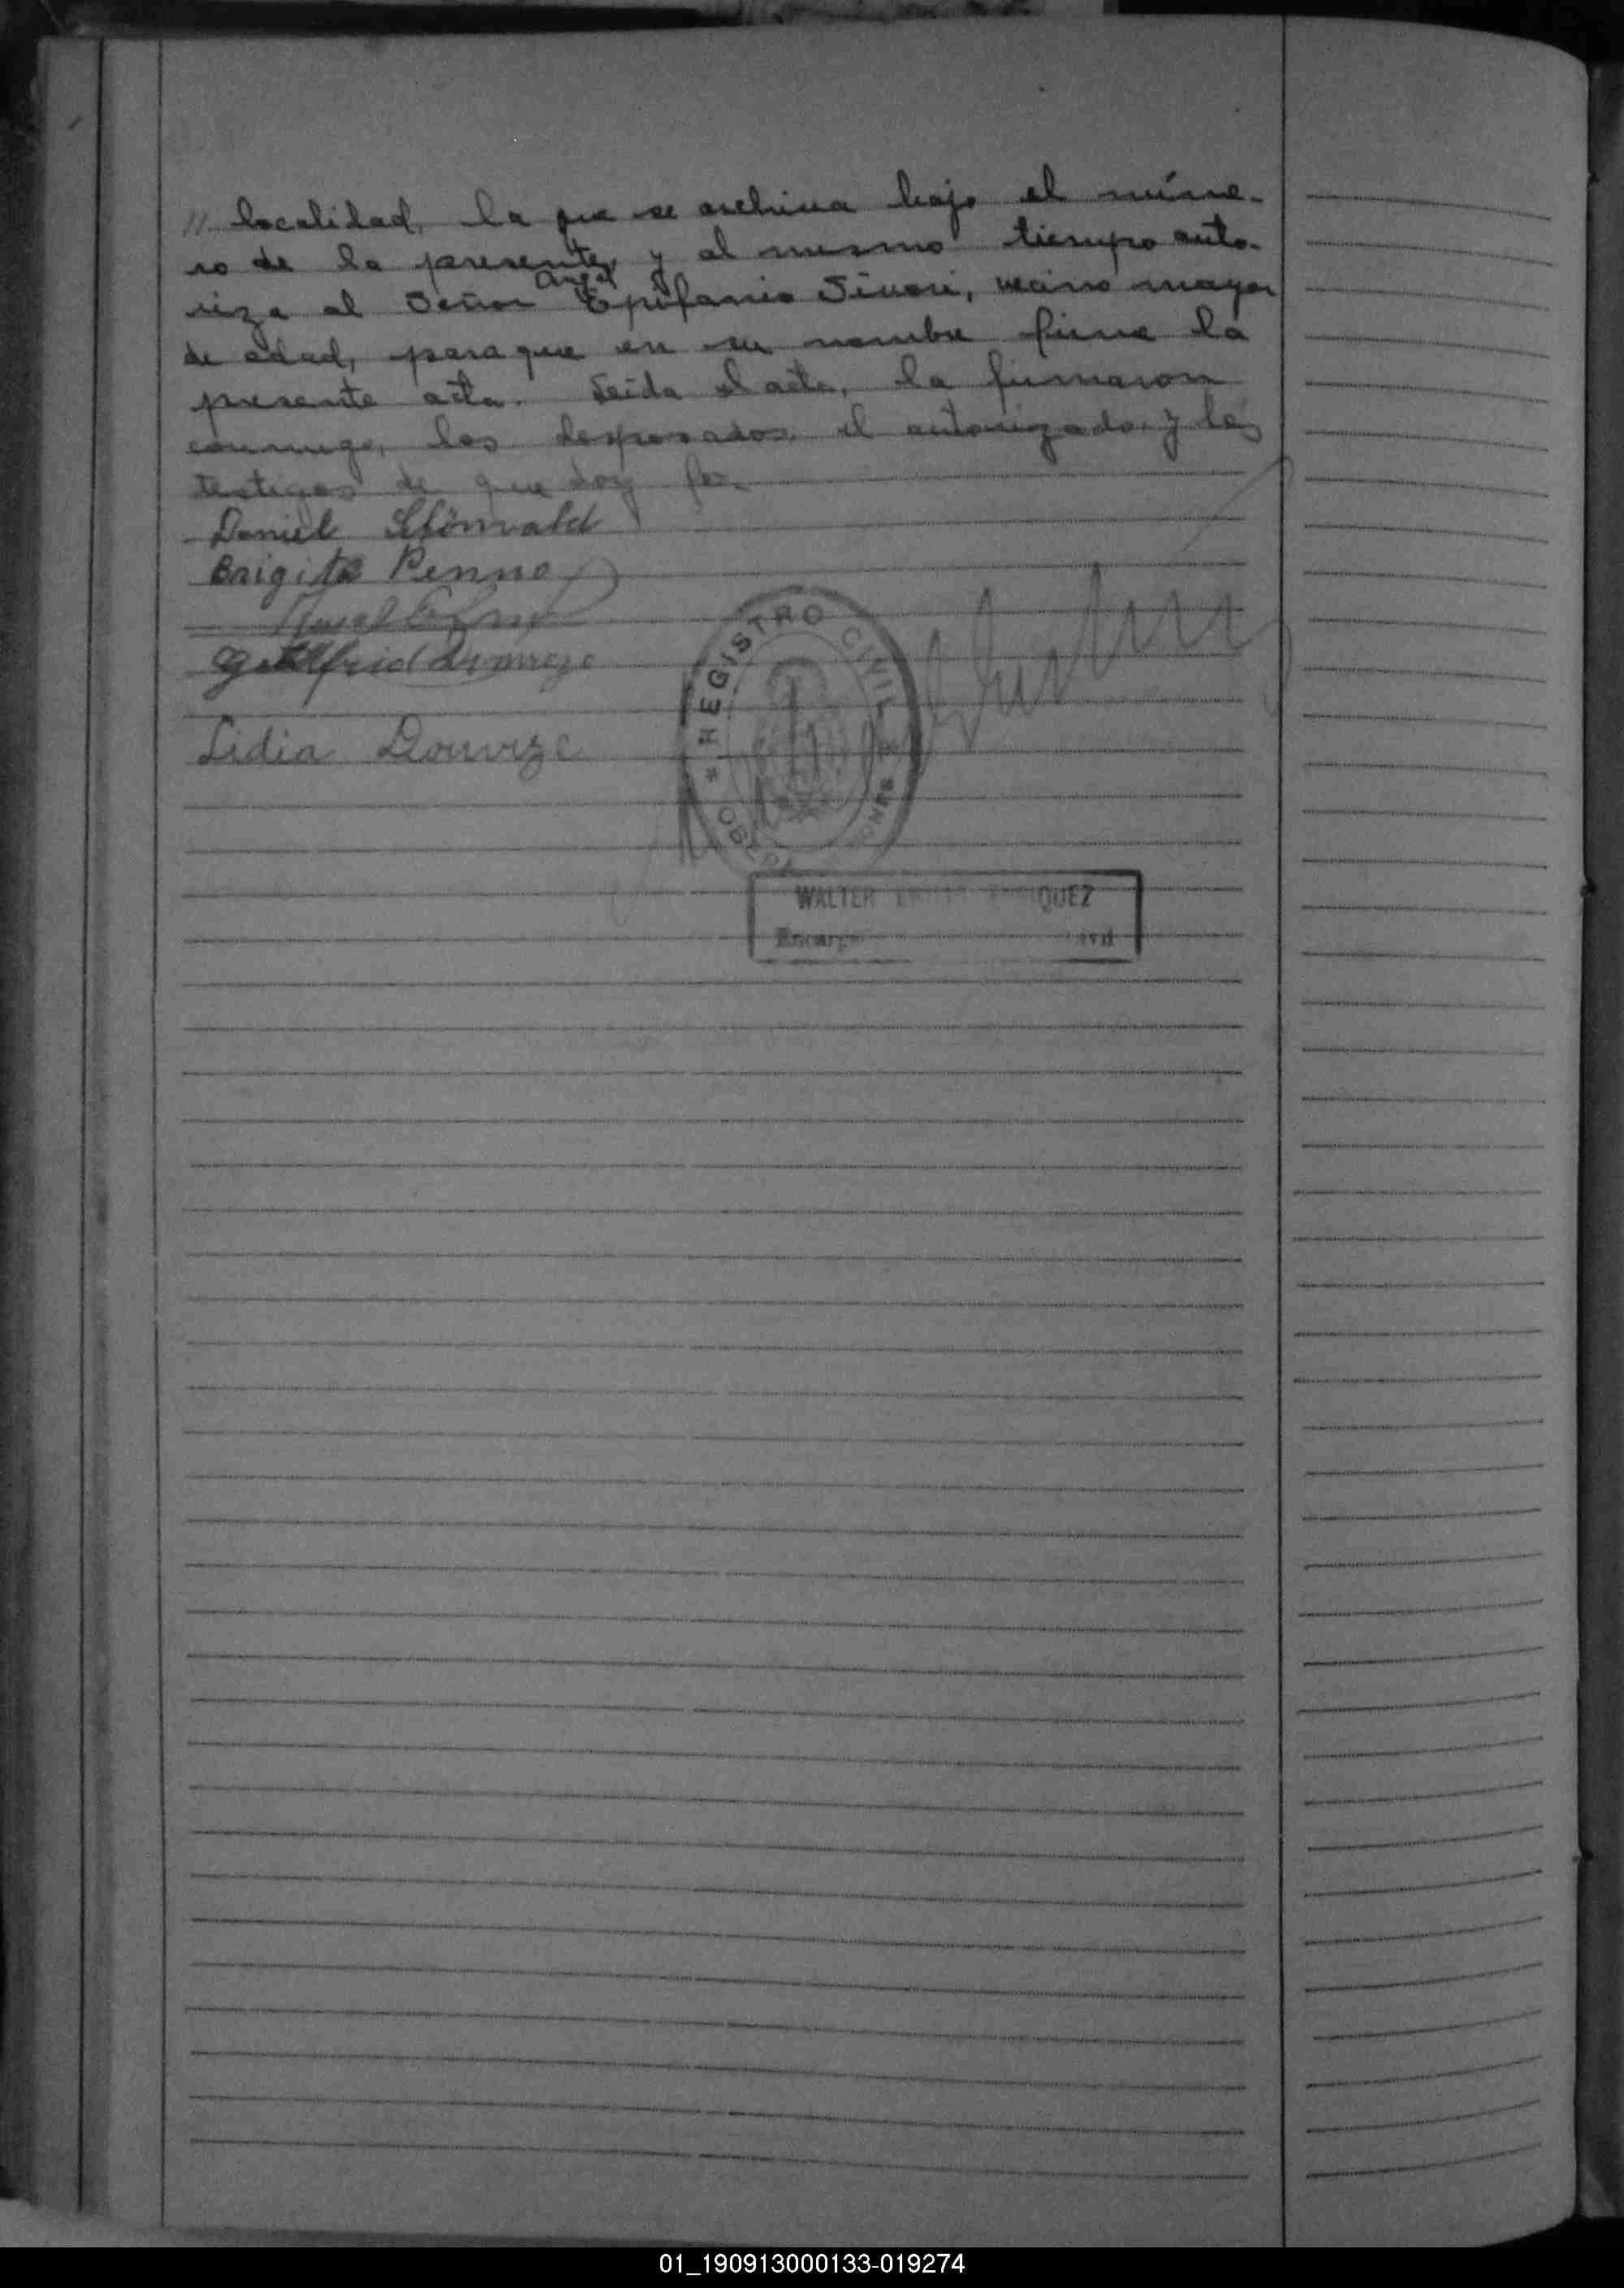 // localidad, la que se archiva bajo el núme-
ro de la presente, y al mismo tiempo auto-
Angel
riza al Señor Epifanio Sivori, vecino mayor
de edad, para que en su nombre firme la
presente acta. Leida el acta, la firmaron
conmigo, los desposados, el autorizado y los
testigos de que doy fe.
Daniel
Brigita Penno
Gottfried
Lidia
* REGISTRO CIVIL *
OBERA MISIONES
WALTER ENRIQUEZ
01_190913000133-019274